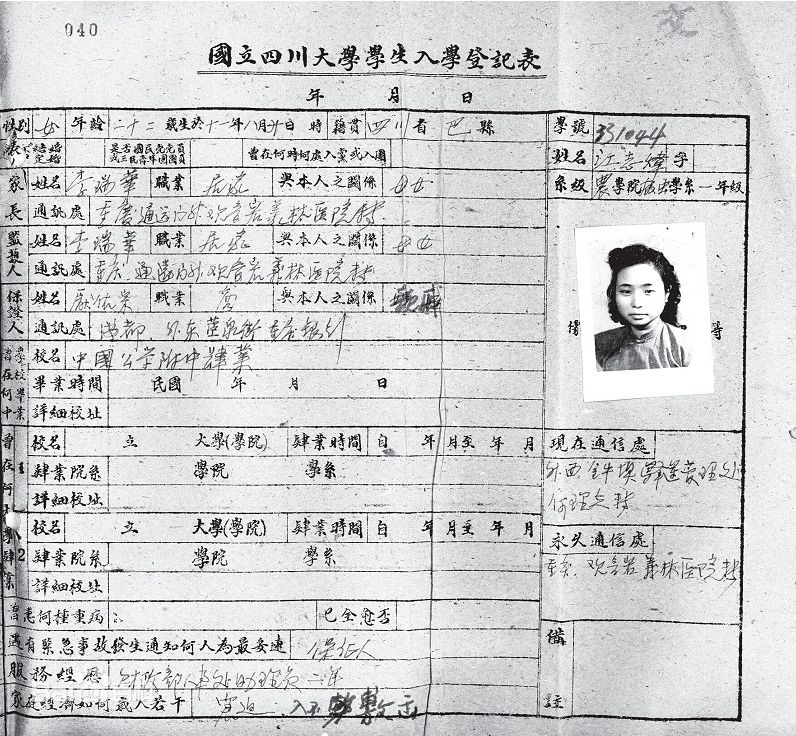 040
國立四川大學學生入學登記表
年 月 日
性別 女 年齡 二十二 歲生於十一年八月廿日 時 籍貫 四川省 巴縣
學號 331044
是否國民党党員或三民青年團團員 曾在何時何處入黨或入團
姓名 江志煒 字
家長 姓名 李瑞華 職業 居家 與本人之關係 母女
系級 農學院 學系一年級
通訊處 重慶通远门外观音岩義林医院转
監護人 姓名 李瑞華 職業 居家 與本人之關係 母女
通訊處 重庆通遠门外观音岩義林医院转
保證人 姓名 職業 商 與本人之關係 親戚
通訊處 成都 外东
校名 中國公学附中肄業
畢業時間 民國 年 月 日
詳細校址
曾在何大學肄業
1 校名 立 大學(學院) 肄業時間 自 年 月至 年 月
肄業院系 學院 學系
詳細校址
2 校名 立 大學(學院) 肄業時間 自 年 月至 年 月
肄業院系 學院 學系
詳細校址
現在通信處
外西
何理立转
永久通信處
重庆观音岩義林医院转
曾患何種重病 已全愈否
遇有緊急事故發生通知何人為最妥速 保证人
服務經歷 财政部人事处助理員一年
家庭經濟如何歲入若干 窘迫 入不敷出
備註